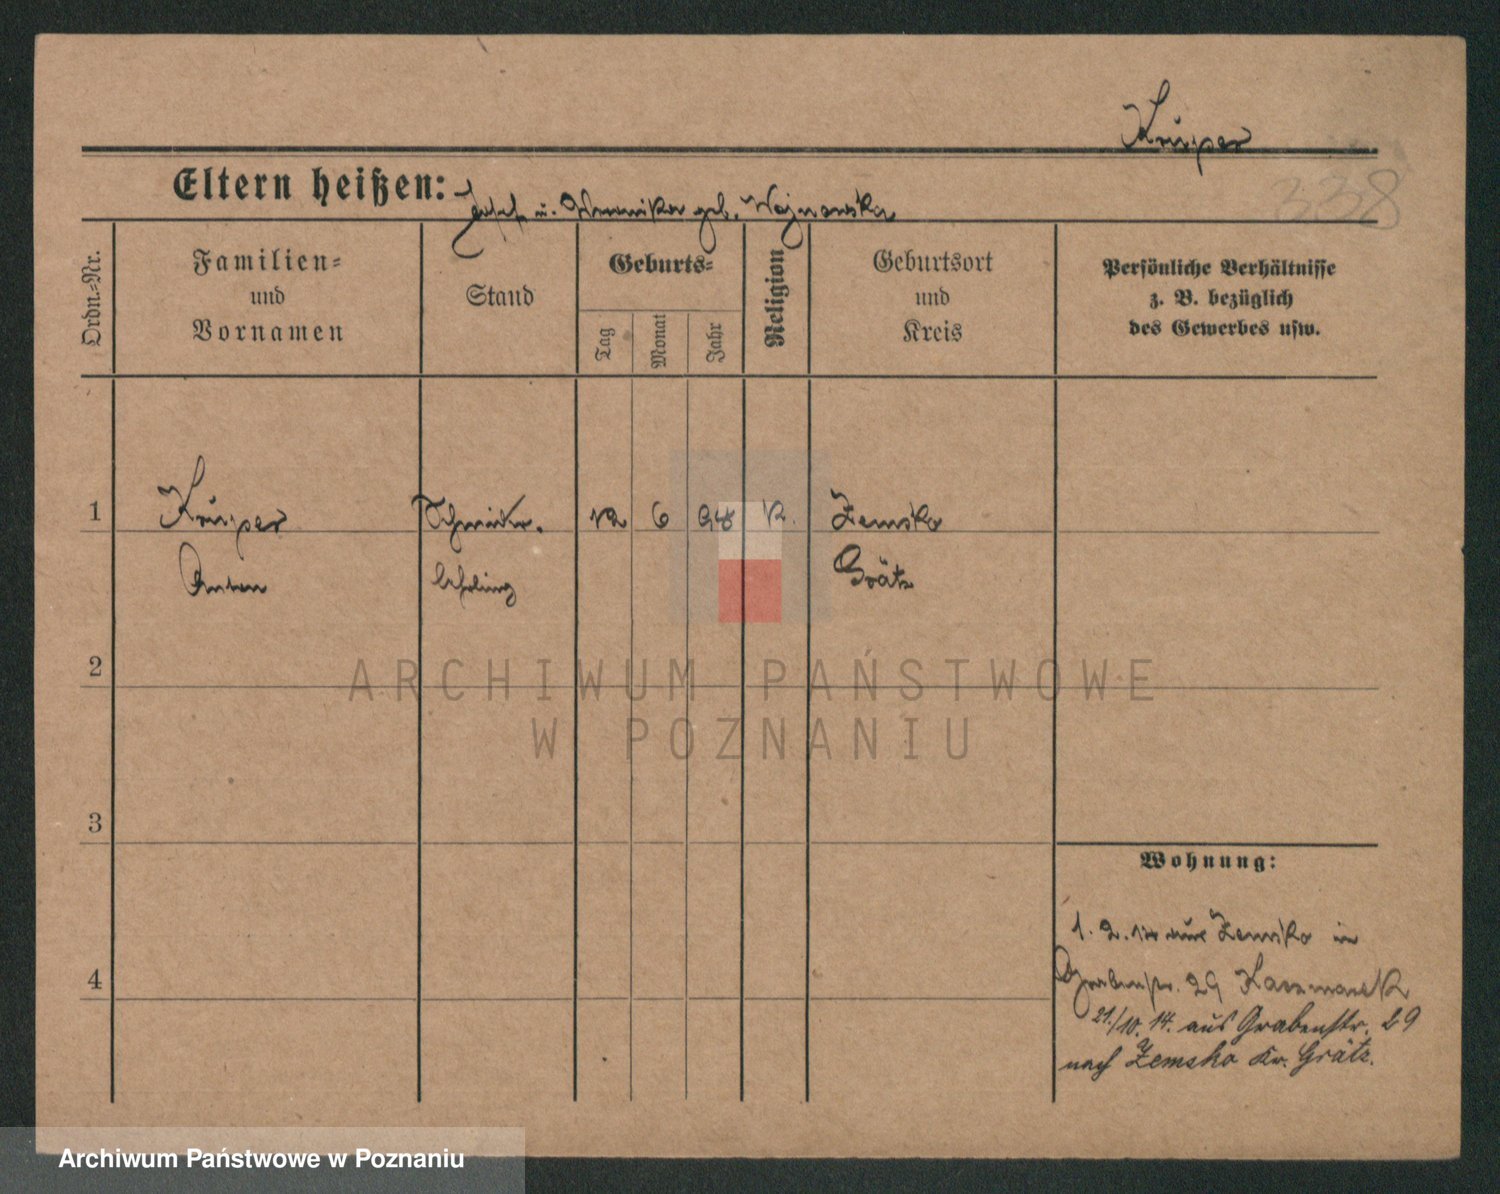 Krüper
338
Eltern heißen: Josef u. Weronika geb. Wojnowska
Ordn.=Nr.
Familien=
und
Vornamen
Stand
Geburts=
Tag
Monat
Jahr
Religion
Geburtsort
und
Kreis
Persönliche Verhältnisse
z. B. bezüglich
des Gewerbes usw.
1 Krüper Schneider. 12 6 98 K. Zemsko
Anton lehrling Grätz
2
ARCHIWUM PAŃSTWOWE
W POZNANIU
3
Wohnung:
1. 2. 14 aus Zemsko in
4
Grabenstr. 29 Kaczmarek
21./10. 14. aus Grabenstr. 29
nach Zemsko Kr. Grätz.
Archiwum Państwowe w Poznaniu